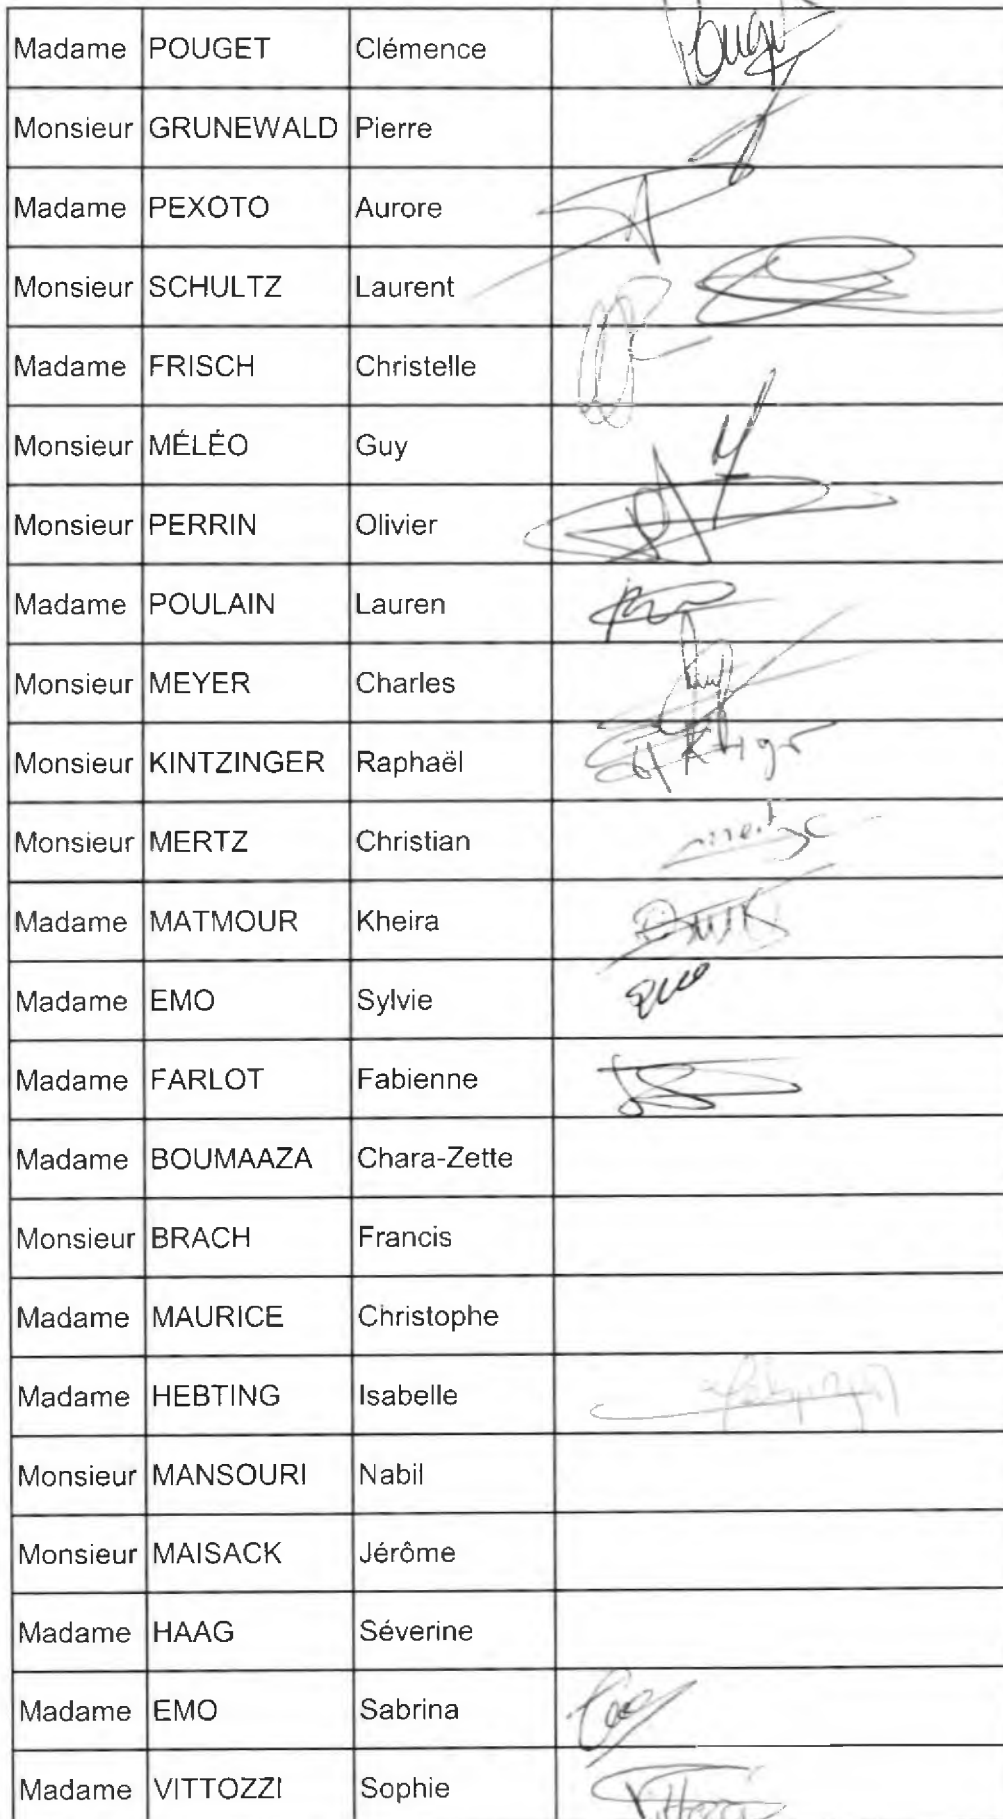 Madame POUGET Clémence Pouget
Monsieur GRUNEWALD Pierre
Madame PEXOTO Aurore
Monsieur SCHULTZ Laurent
Madame FRISCH Christelle
Monsieur MÉLÉO Guy
Monsieur PERRIN Olivier
Madame POULAIN Lauren
Monsieur MEYER Charles
Monsieur KINTZINGER Raphaël
Monsieur MERTZ Christian
Madame MATMOUR Kheira
Madame EMO Sylvie
Madame FARLOT Fabienne
Madame BOUMAAZA Chara-Zette
Monsieur BRACH Francis
Madame MAURICE Christophe
Madame HEBTING Isabelle
Monsieur MANSOURI Nabil
Monsieur MAISACK Jérôme
Madame HAAG Séverine
Madame EMO Sabrina
Madame VITTOZZI Sophie Vittozzi